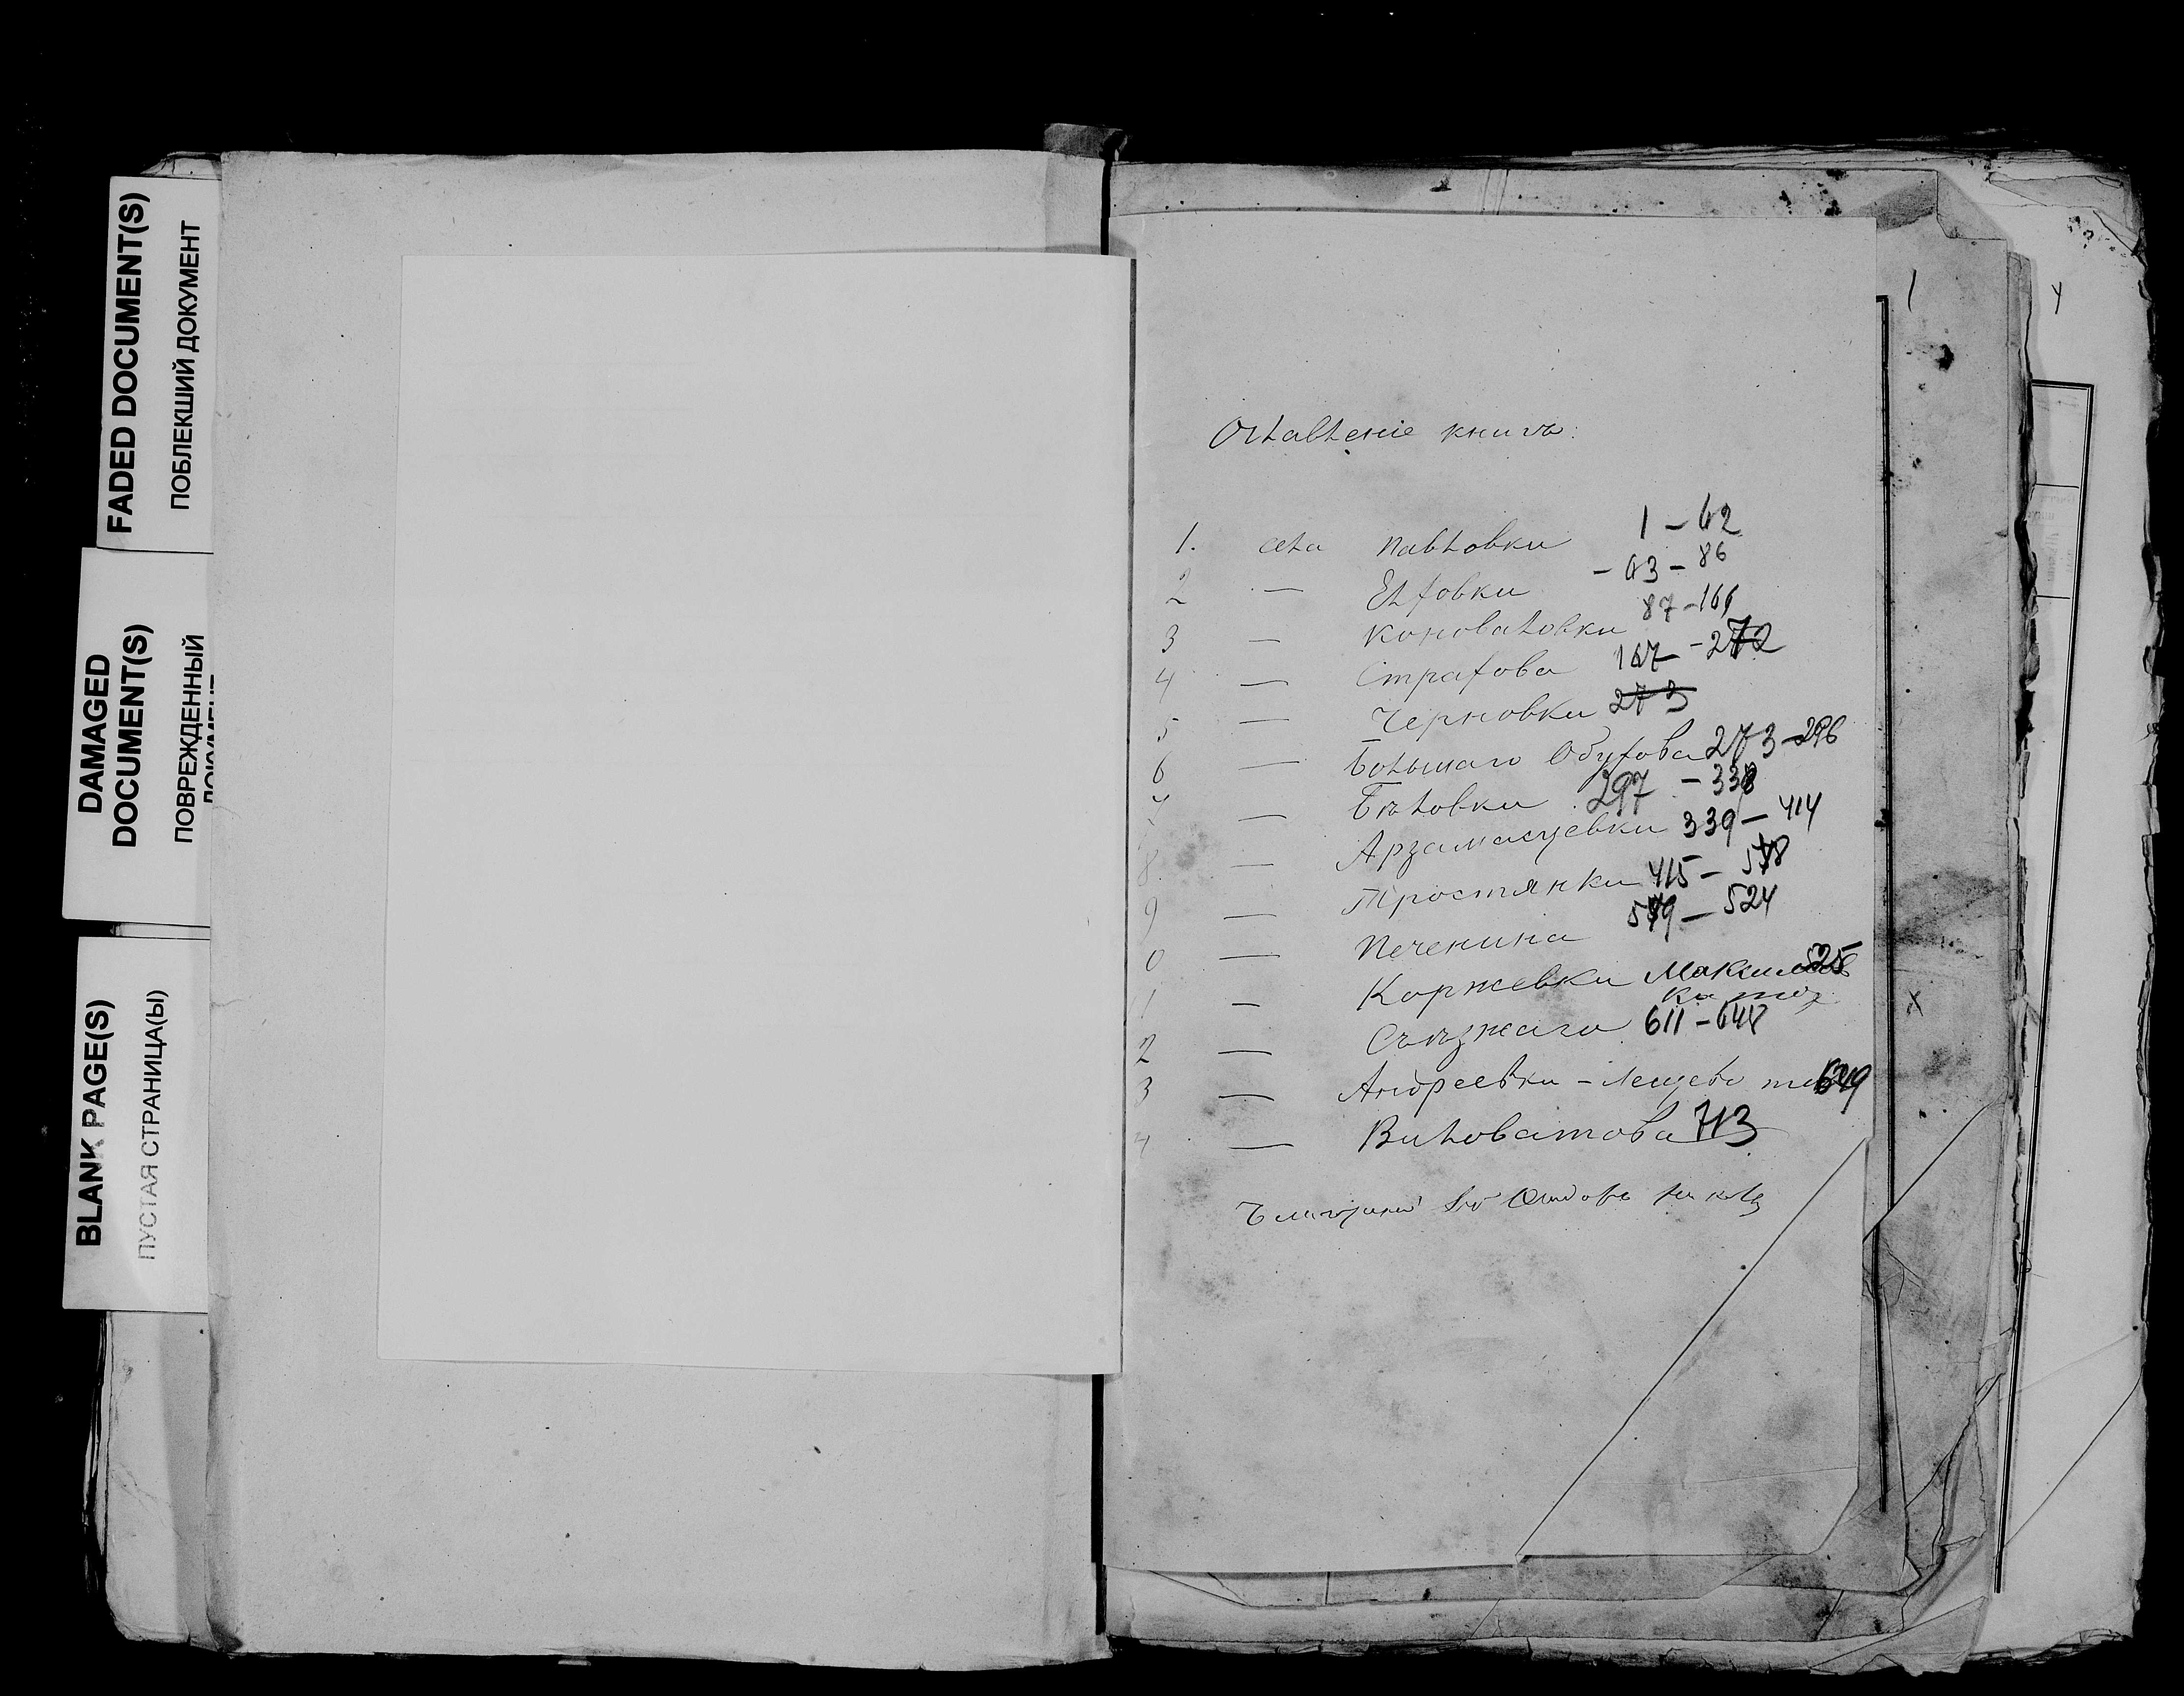 FADED DOCUMENT(S)
ПОБЛЕКШИЙ ДОКУМЕНТ
DAMAGED
DOCUMENT(S)
ПОВРЕЖДЕННЫЙ
ДОКУМЕНТ
BLANK PAGE(S)
ПУСТАЯ СТРАНИЦА(Ы)
1
Оглавленіе книги:
1. села Павловки 1 – 62
2 — Елховки – 63 – 86
3 — Коноваловки 87 – 166
4 — Страхова 167 – 272
5 — Черновки 273
6 — Большаго Обухова 273 – 296
7 — Бѣловки 297 – 338
8. — Арзамасцевки 339 – 414
9 — Тростянки 415 – 518
0 — Печенина 519 – 524
1 — Коржевки Максимов 525
ка тож
2 — Съѣзжаго 611 – 648
3 — Андреевки – Лещево тож 649
4 — Виловатова 713